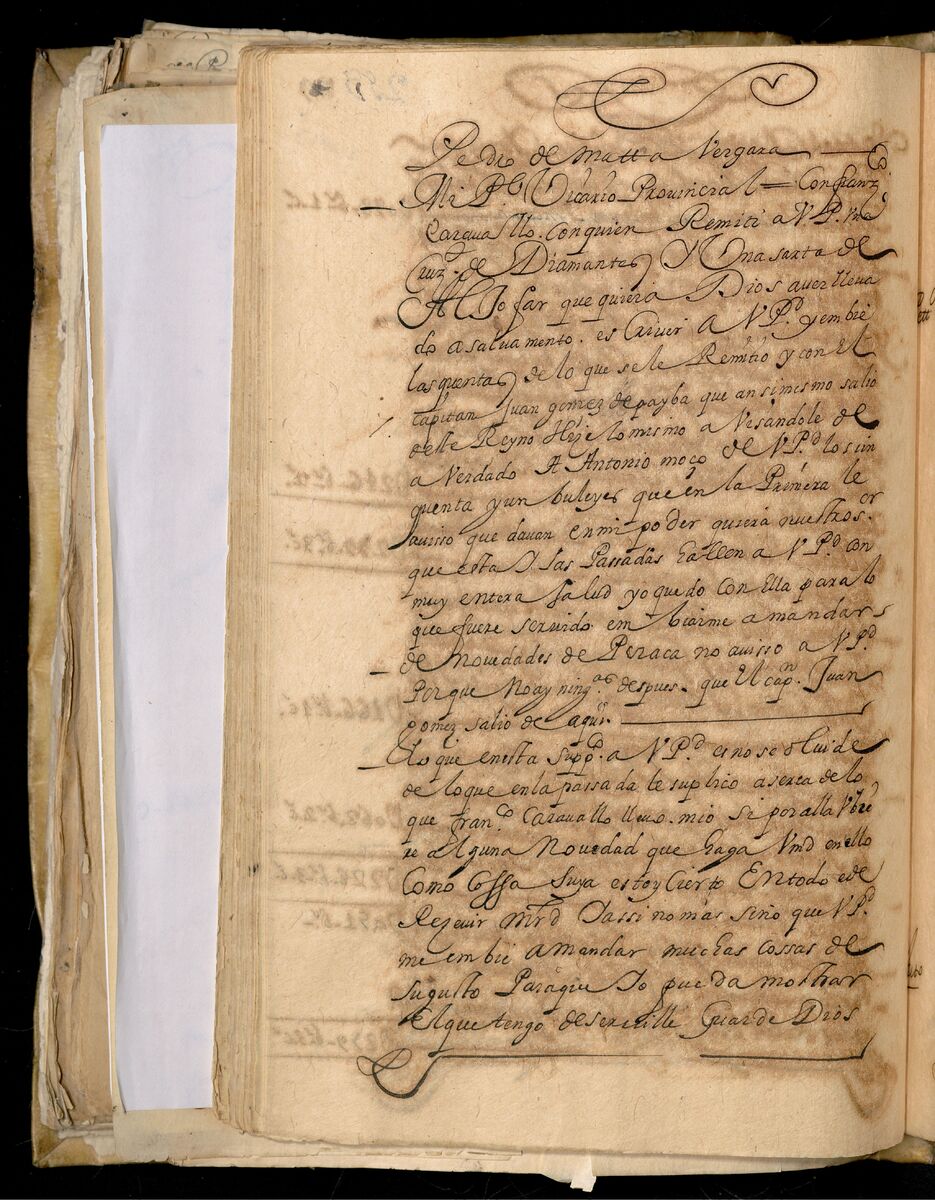 Pedro de matta Vergara
Mi Pe. Vicario Provincial = Con franco.
Carauallo. con quien Remiti a V P. vna
Cruz. de Diamantes Y Una sarta de
Aljofar que quiera Dios auer lleua
do a saluamento. escriui A V Pd. y embie
las quentas de lo que se le Remitio y con El
Capitan Juan gomez de payba que ansimesmo salio
deste Reyno hize lo mismo a Visandole de
a Verdado A Antonio moço de V Pd. los cin
quenta y un buleyes que en la Primera le
auisso que dauan en mi poder quiera nuestro sor.
que esta I las Passadas hallen a V Pd. con
muy entera salud yo quedo con Ella para lo
que fuere seruido embiarme a mandar
de Novedades de Peraca no auisso a V Pd.
Porque No ay ningas. despues. que El capn. Juan
gomez salio de aqui.
Lo que en esta suppco. a V Pd. es no se oluide
de lo que en la passada le suplico a serca de lo
que franco. Carauallo lleuo. mio si por alla Vbie
re alguna Novedad que haga Vmd en ello
Como Cossa Suya estoy Cierto En todo e de
Rezeuir mrd I assi no mas sino que V Pd.
me embie a mandar muchas cossas de
su gusto Para que Io pueda mostrar
El que tengo de seruille Guarde Dios